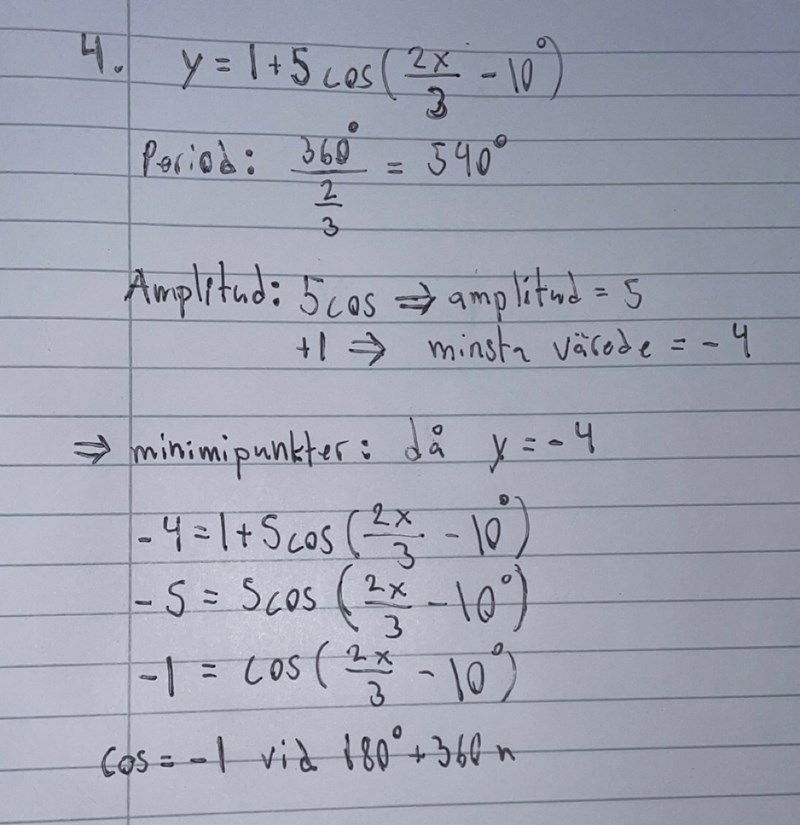 4. y = 1 + 5 cos(2x/3 - 10°)
Period: 360°/(2/3) = 540°
Amplitud: 5 cos ⇒ amplitud = 5
+1 ⇒ minsta värde = -4
⇒ minimipunkter: då y = -4
-4 = 1 + 5 cos(2x/3 - 10°)
-5 = 5 cos(2x/3 - 10°)
-1 = cos(2x/3 - 10°)
cos = -1 vid 180° + 360 n